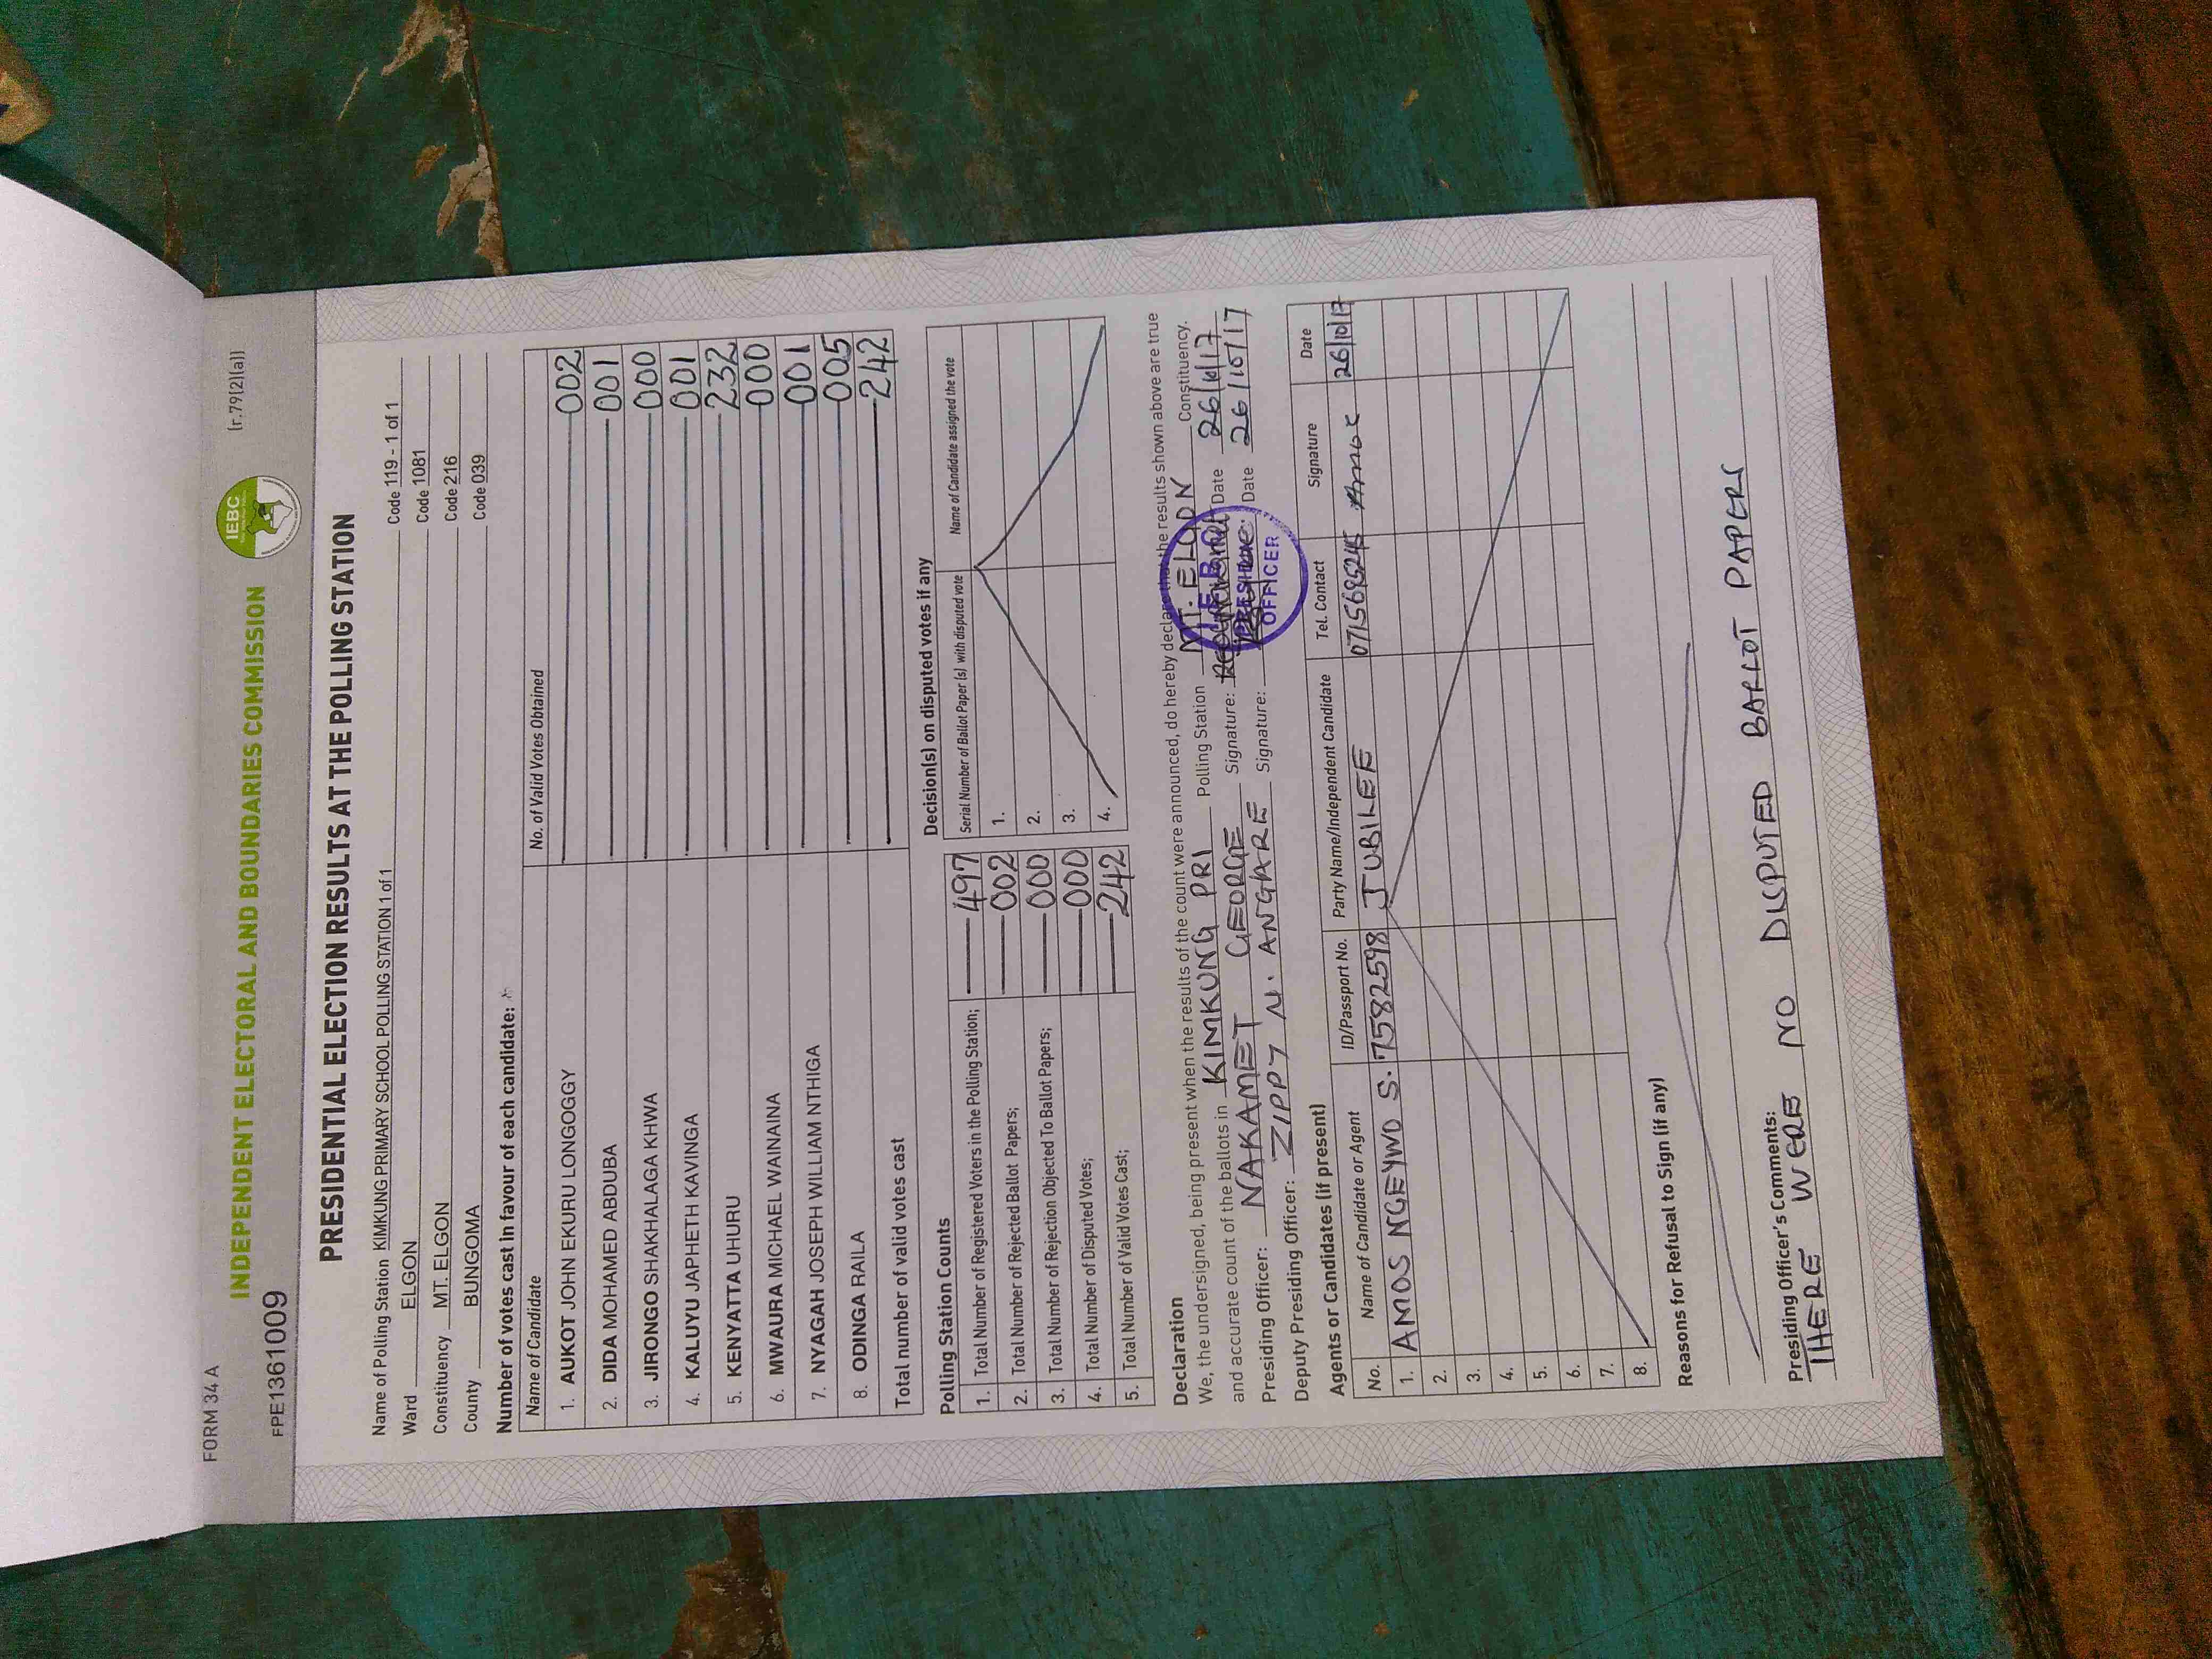 FORM 34 A
(r.79(2)(a))
INDEPENDENT ELECTORAL AND BOUNDARIES COMMISSION
IEBC
FPE1361009
PRESIDENTIAL ELECTION RESULTS AT THE POLLING STATION
Name of Polling Station KIMKUNG PRIMARY SCHOOL POLLING STATION 1 of 1 Code 119 - 1 of 1
Ward ELGON Code 1081
Constituency MT. ELGON Code 216
County BUNGOMA Code 039
Number of votes cast in favour of each candidate:
Name of Candidate No. of Valid Votes Obtained
1. AUKOT JOHN EKURU LONGOGGY 002
2. DIDA MOHAMED ABDUBA 001
3. JIRONGO SHAKHALAGA KHWA 000
4. KALUYU JAPHETH KAVINGA 001
5. KENYATTA UHURU 232
6. MWAURA MICHAEL WAINAINA 000
7. NYAGAH JOSEPH WILLIAM NTHIGA 001
8. ODINGA RAILA 005
Total number of valid votes cast 242
Polling Station Counts
1. Total Number of Registered Voters in the Polling Station; 497
2. Total Number of Rejected Ballot Papers; 002
3. Total Number of Rejection Objected To Ballot Papers; 000
4. Total Number of Disputed Votes; 000
5. Total Number of Valid Votes Cast; 242
Decision(s) on disputed votes if any
Serial Number of Ballot Paper (s) with disputed vote Name of Candidate assigned the vote
1.
2.
3.
4.
Declaration
We, the undersigned, being present when the results of the count were announced, do hereby declare that the results shown above are true
and accurate count of the ballots in KIMKUNG PRI Polling Station MT. ELGON Constituency.
Presiding Officer: NAKAMET GEORGE Signature: Date 26/10/17
Deputy Presiding Officer: ZIPPY N. ANGARE Signature: Date 26/10/17
I.E.B.C
PRESIDING
OFFICER
Agents or Candidates (if present)
No. Name of Candidate or Agent ID/Passport No. Party Name/Independent Candidate Tel. Contact Signature Date
1. AMOS NGEYWO S. 7582598 JUBILEE 0715695245 26/10/17
2.
3.
4.
5.
6.
7.
8.
Reasons for Refusal to Sign (if any)
Presiding Officer's Comments:
THERE WERE NO DISPUTED BALLOT PAPERS